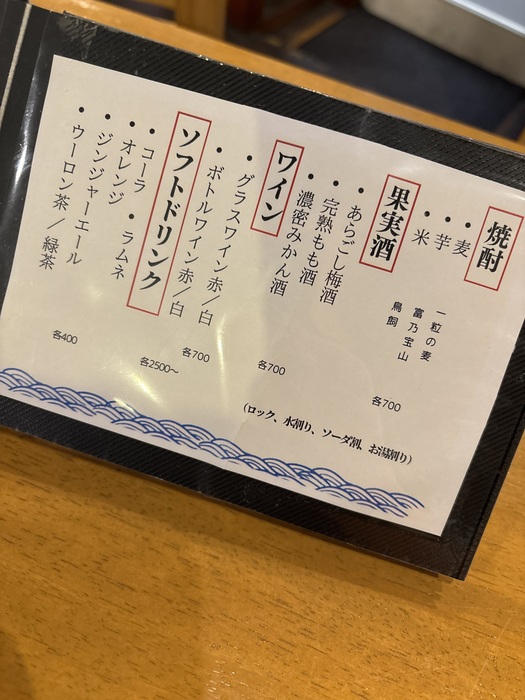 焼酎
・麦 一粒の麦
・芋 富乃宝山
・米 鳥飼
各700
(ロック、水割り、ソーダ割、お湯割り)
果実酒
・あらごし梅酒
・完熟もも酒
・濃密みかん酒
各700
ワイン
・グラスワイン赤／白
各700
・ボトルワイン赤／白
各2500〜
ソフトドリンク
・コーラ ・ラムネ
・オレンジ
・ジンジャーエール
・ウーロン茶／緑茶
各400